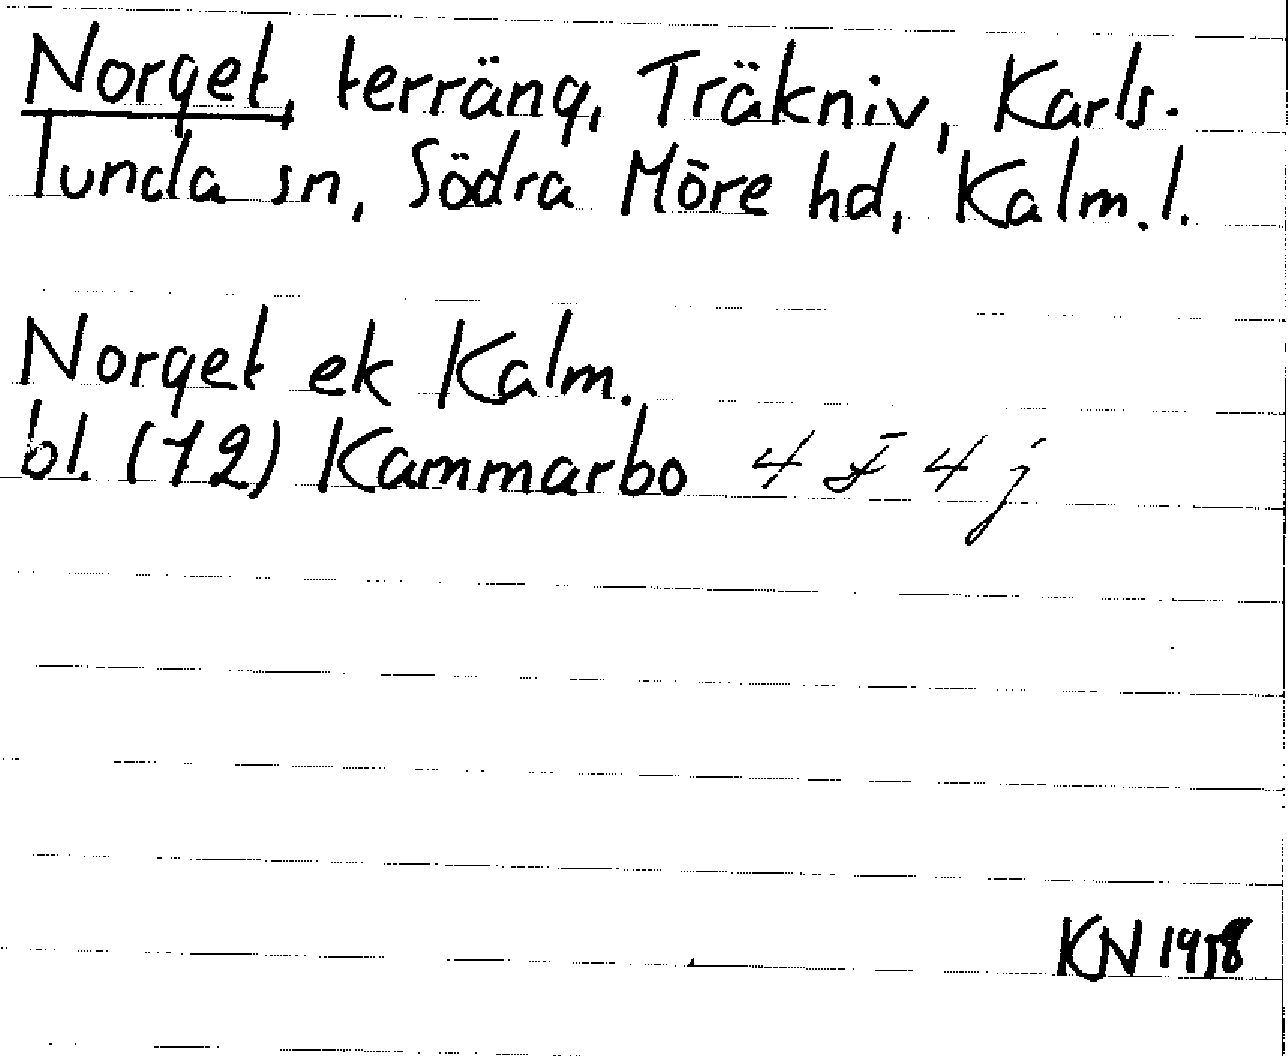 Norget, terräng, Träkniv, Karls.
lunda sn, Södra Möre hd, Kalm. l.
Norget ek Kalm.
bl. (12) Kammarbo 4 F 4 j
KN 1958